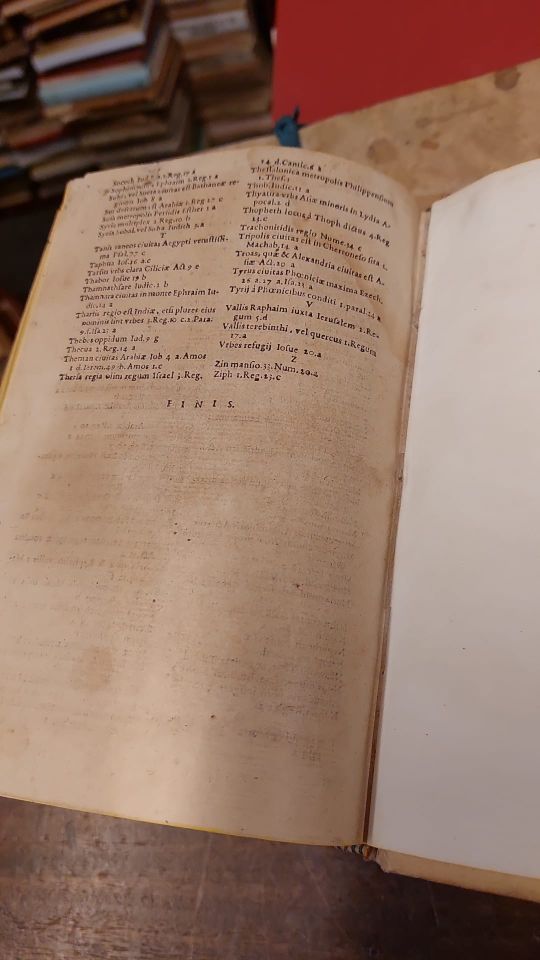 Socoth Iud. 8.a 2.Reg.17 d
Sophim ciuitas Ephraim 1.Reg 1 a
Suhi, vel Suita ciuitas est Bathaneæ re-
gionis Iob 8 a
Sur desertum est Arabiæ 1.Reg.27 c
Susis metropolis Persidis Esther 1 a
Syria multiplex 2.Reg.10 b
Syria Sobal, vel Soba Iudith 3.a
T
Tanis taneos ciuitas Aegypti vetustiss-
ma Psal.77 c
Taphua Ios.16 a.c
Tarsus vrbs clara Ciliciæ Act.9 e
Thabor Iosue 19 b
Thamnathsare Iudic.2 b
Thamnata ciuitas in monte Ephraim Iu-
dic.14 a
Tharsis regio est Indiæ, etsi plures eius
nominis sint vrbes 3.Reg.10 c.2.Para.
9.f.Isa.2: a
Thebes oppidum Iud.9 g
Thecua 2.Reg.14 a
Theman ciuitas Arabiæ Iob 4 a. Amos
1 d.Ierem.49 b. Amos 1.c
Thersa regia olim regum Israel 3.Reg.
14 d.Cantic.6 a
Thessalonica metropolis Philippensium
1.Thes.1
Thob.Iudic.11 a
Thyatira vrbs Asiæ minoris in Lydia A-
pocal.2 d
Thopheth locus, Thoph dictus 4.Reg
23.c
Trachonitidis regio Nume.34 c
Tripolis ciuitas est in Cherroneso sita 1.
Machab.14 a
Troas, quæ & Alexandria ciuitas est A-
siæ Act.20 a
Tyrus ciuitas Phœniciæ maxima Ezech.
26 a.27 a.Isa.23 a
Tyrij à Phœnicibus conditi 1.paral.14 a
V
Vallis Raphaim iuxta Ierusalem 2.Re-
gum 5.d
Vallis terebinthi, vel quercus 1.Regum
17.a
Vrbes refugij Iosue 20.a
Z
Zin mansio.33.Num.20.4
Ziph 1.Reg.23.c
FINIS.